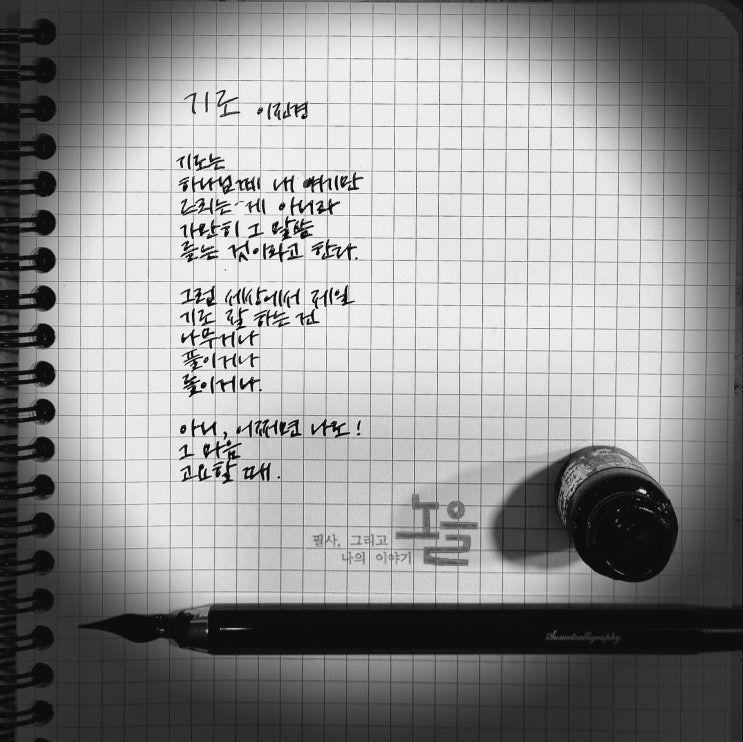 기도 이진경
기도는
하나님께 내 얘기만
드리는 게 아니라
가만히 그 말씀
듣는 것이라고 한다.
그럼 세상에서 제일
기도 잘 하는 건
나무거나
풀이거나
돌이거나.
아니, 어쩌면 나도!
그 마음
고요할 때.
필사, 그리고
나의 이야기
노을
Sunsetcalligraphy